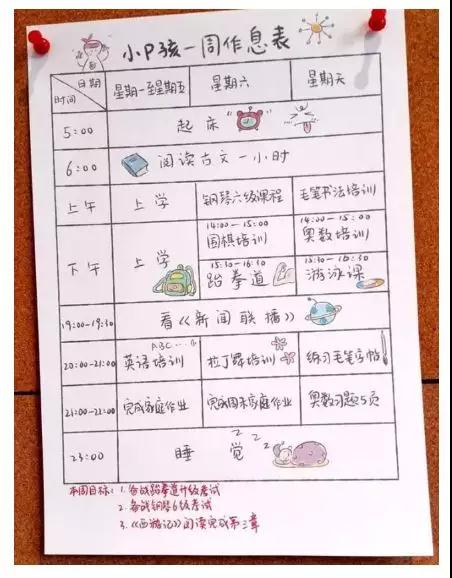 小P孩一周作息表
日期
时间
星期一至星期五 星期六 星期天
5:00 起床
6:00 阅读古文一小时
上午 上学 钢琴六级课程 毛笔书法培训
下午 上学
14:00-15:00 14:00-15:00
围棋培训 奥数培训
15:30-16:30 15:30-16:30
跆拳道 游泳课
19:00-19:30 看《新闻联播》
ABC...
20:00-21:00 英语培训 拉丁舞培训 练习毛笔字帖
21:00-22:00 完成家庭作业 完成周末家庭作业 奥数习题5页
23:00 睡觉 zzz
本周目标: 1.备战跆拳道升级考试
2.备战钢琴6级考试
3.《西游记》阅读完成第三章